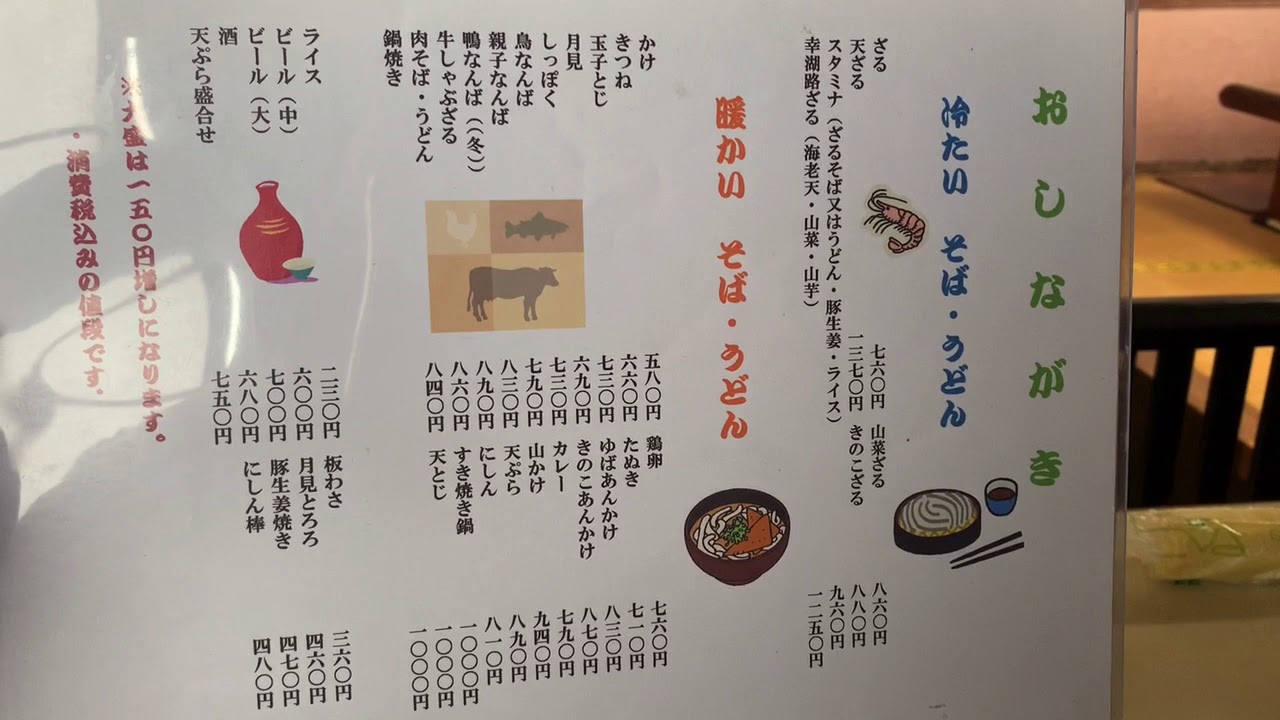 おしながき
冷たい そば・うどん
ざる 七六〇円 山菜ざる 八六〇円
天ざる 一三七〇円 きのこざる 八八〇円
スタミナ（ざるそば又はうどん・豚生姜・ライス） 九六〇円
幸湖路ざる（海老天・山菜・山芋） 一二五〇円
暖かい そば・うどん
かけ 五八〇円 鶏卵 七六〇円
きつね 六六〇円 たぬき 七一〇円
玉子とじ 七三〇円 ゆばあんかけ 八三〇円
月見 六九〇円 きのこあんかけ 八七〇円
しっぽく 七三〇円 カレー 七九〇円
鳥なんば 七九〇円 山かけ 九四〇円
親子なんば 八三〇円 天ぷら 八九〇円
鴨なんば（（冬） 八九〇円 にしん 八一〇円
牛しゃぶざる 八六〇円 すき焼き鍋 一〇〇〇円
肉そば・うどん 八四〇円 天とじ 一〇〇〇円
鍋焼き 一〇〇〇円
ライス 二三〇円 板わさ 三六〇円
ビール（中） 六〇〇円 月見とろろ 四六〇円
ビール（大） 七〇〇円 豚生姜焼き 四七〇円
酒 六八〇円 にしん棒 四八〇円
天ぷら盛合せ 七五〇円
※大盛は一五〇円増しになります。
・消費税込みの値段です。